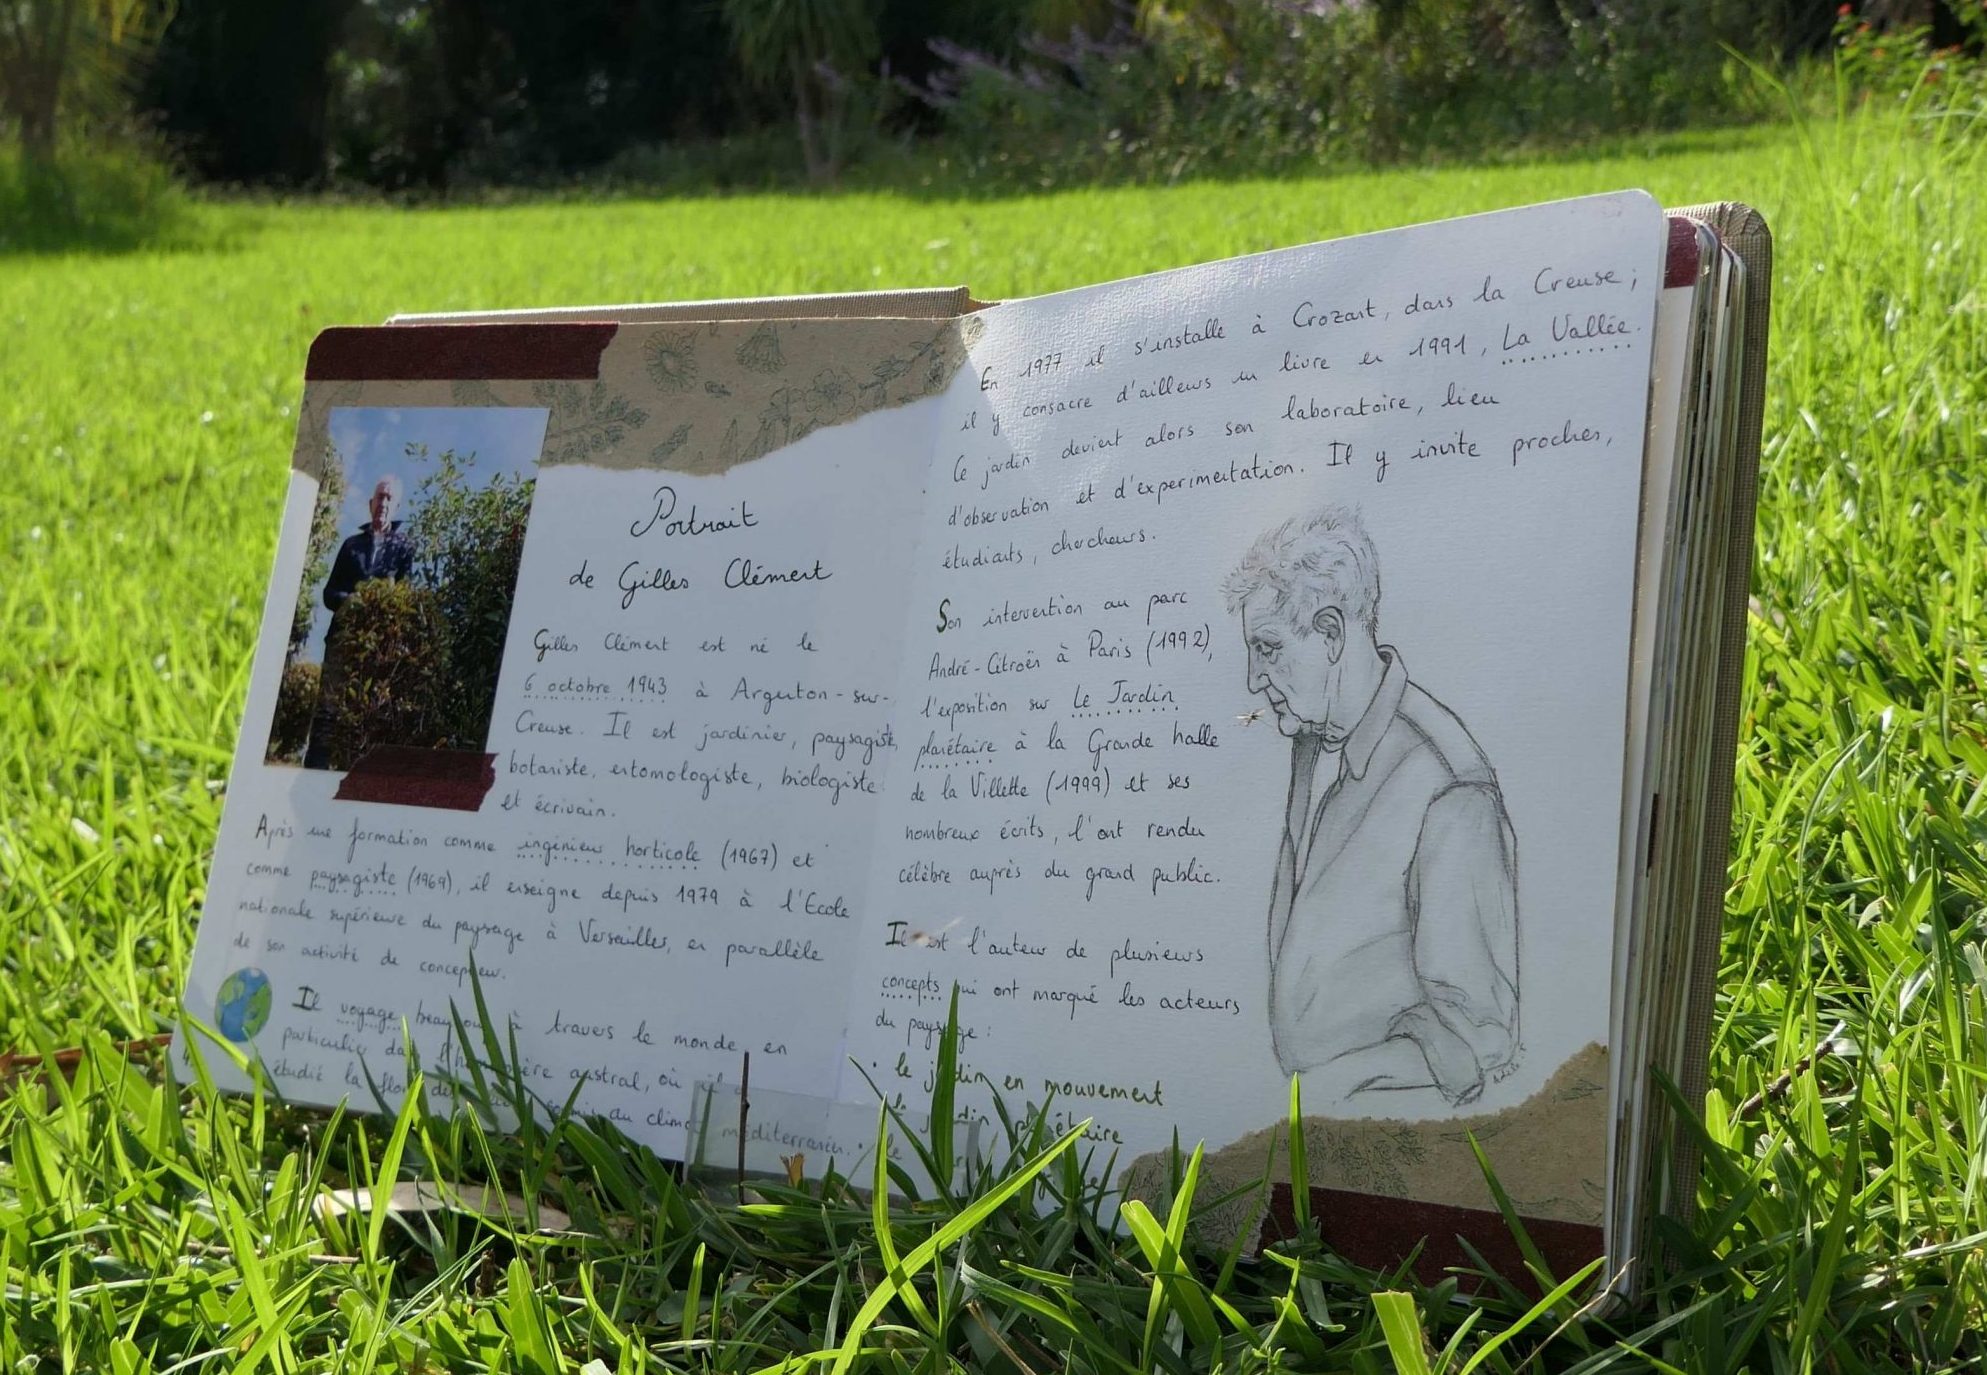 Portrait
de Gilles Clément
Gilles Clément est né le
6 octobre 1943 à Argenton-sur-
Creuse. Il est jardinier, paysagiste,
botaniste, entomologiste, biologiste
et écrivain.
Après une formation comme ingénieur horticole (1967) et
comme paysagiste (1969), il enseigne depuis 1979 à l'Ecole
nationale supérieure du paysage à Versailles, en parallèle
de son activité de concepteur.
Il voyage beaucoup à travers le monde en
particulier dans l'hémisphère austral, où il a
étudié la flore du climat méditerranéen.
En 1977 il s'installe à Crozant, dans la Creuse ;
il y consacre d'ailleurs un livre en 1991, La Vallée.
Ce jardin devient alors son laboratoire, lieu
d'observation et d'experimentation. Il y invite proches,
étudiants, chercheurs.
Son intervention au parc
André-Citroën à Paris (1992),
l'exposition sur Le Jardin
planétaire à la Grande halle
de la Villette (1999) et ses
nombreux écrits, l'ont rendu
célèbre auprès du grand public.
Il est l'auteur de plusieurs
concepts qui ont marqué les acteurs
du paysage :
• le jardin en mouvement
• le jardin planétaire
• le